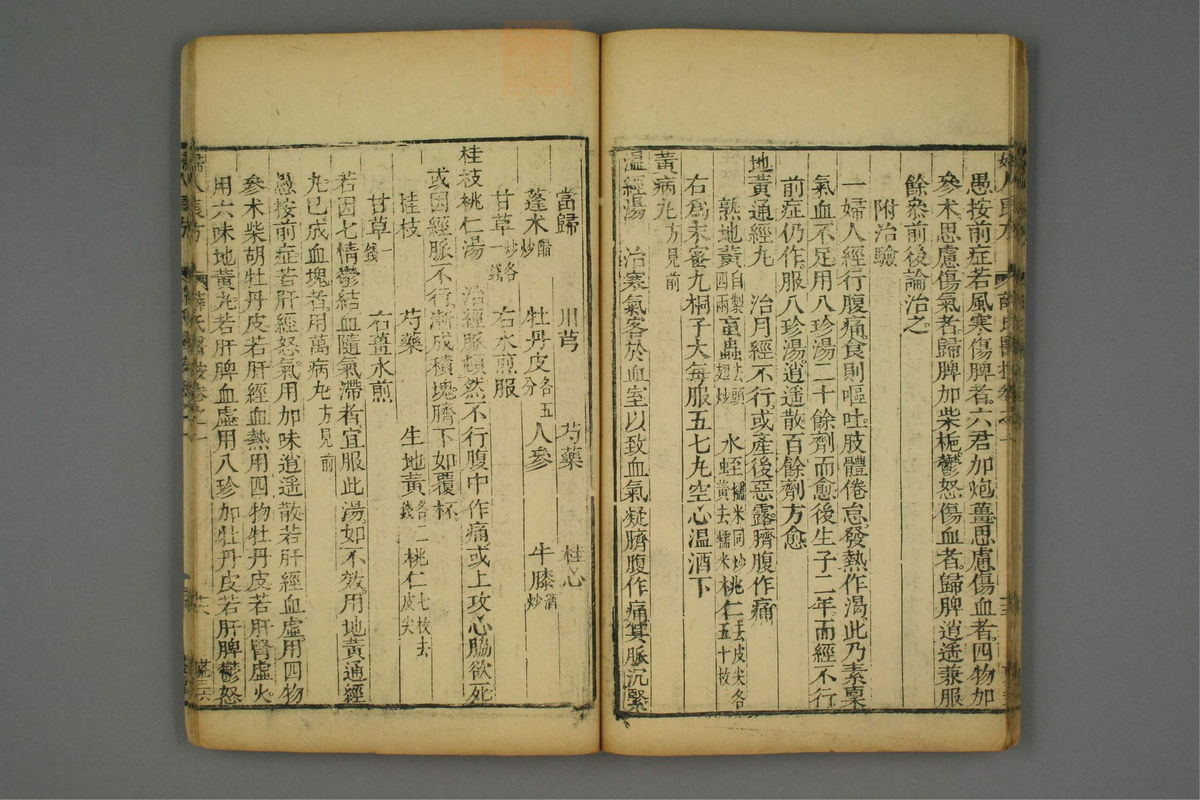 愚按前症若風寒傷脾者六君加炮薑思慮傷血者四物加
參朮思慮傷氣者歸脾加柴梔鬱怒傷血者歸脾逍遥兼服
餘叅前後論治之
附治驗
一婦人經行腹痛食則嘔吐肢體倦怠發熱作渴此乃素稟
氣血不足用八珍湯二十餘劑而愈後生子二年而經不行
前症仍作服八珍湯逍遥散百餘劑方愈
地黃通經丸 治月經不行或產後惡露臍腹作痛
熟地黃自製四兩 䖟蟲去頭翅炒 水蛭糯米同炒黃去糯米 桃仁去皮尖各五十枚
右爲末蜜丸桐子大每服五七丸空心温酒下
黃病丸方見前
温經湯 治寒氣客於血室以致血氣凝臍腹作痛其脈沉緊
當歸 川芎 芍藥 桂心
蓬朮醋炒 牡丹皮各五分 人參 牛膝酒炒
甘草炒各一錢 右水煎服
桂枝桃仁湯 治經脈頓然不行腹中作痛或上攻心脇欲死
或因經脈不行漸成積塊臍下如覆杯
桂枝 芍藥 生地黃各二錢 桃仁七枚去皮尖
甘草一錢 右薑水煎
若因七情鬱結血隨氣滯者宜服此湯如不效用地黃通經
丸已成血塊者用萬病丸方見前
愚按前症若肝經怒氣用加味逍遥散若肝經血虛用四物
參朮柴胡牡丹皮若肝經血熱用四物牡丹皮若肝腎虛火
用六味地黃丸若肝脾血虛用八珍加牡丹皮若肝脾鬱怒